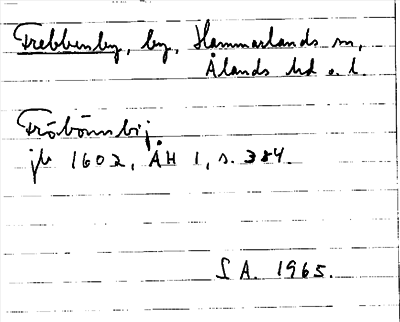 Frebbenby, by, Hammarlands sn,
Ålands hd o. l.
Fröbönnsbij
jb 1602, ÅH 1, s. 384.
S A. 1965.